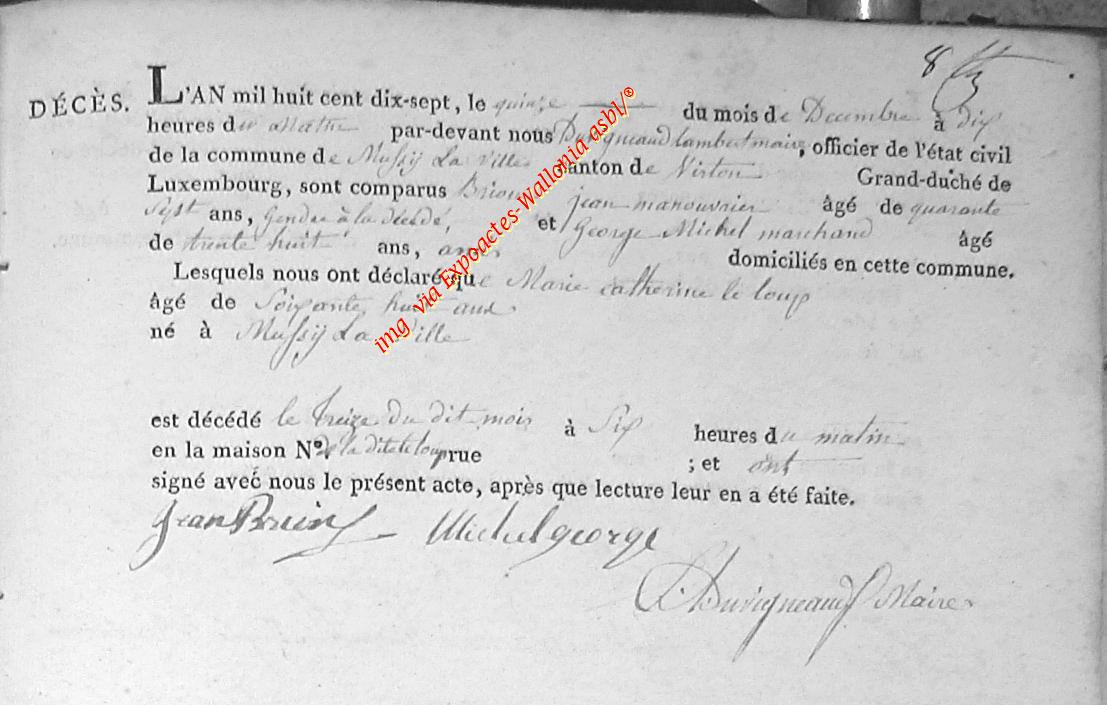 8
DÉCÈS. L'AN mil huit cent dix-sept, le quinze du mois de Decembre à dix
heures du Matin par-devant nous Duvigneaud lambert maire, officier de l'état civil
de la commune de Mussÿ La Ville canton de Virton Grand-duché de
Luxembourg, sont comparus Brion jean manouvrier âgé de quarante
Sept ans, Gendre à la décédé, et George Michel marchand âgé
de trente huit ans, domiciliés en cette commune.
Lesquels nous ont déclaré que Marie catherine le loup
âgé de Soixante huit ans
né à Mussÿ La Ville
est décédé le treize du dit mois à Six heures du matin
en la maison Nº de la dite le loup rue ; et ont
signé avec nous le présent acte, après que lecture leur en a été faite.
jean Michel george
Duvigneaud Maire
img via Expoactes-Wallonia asbl/®